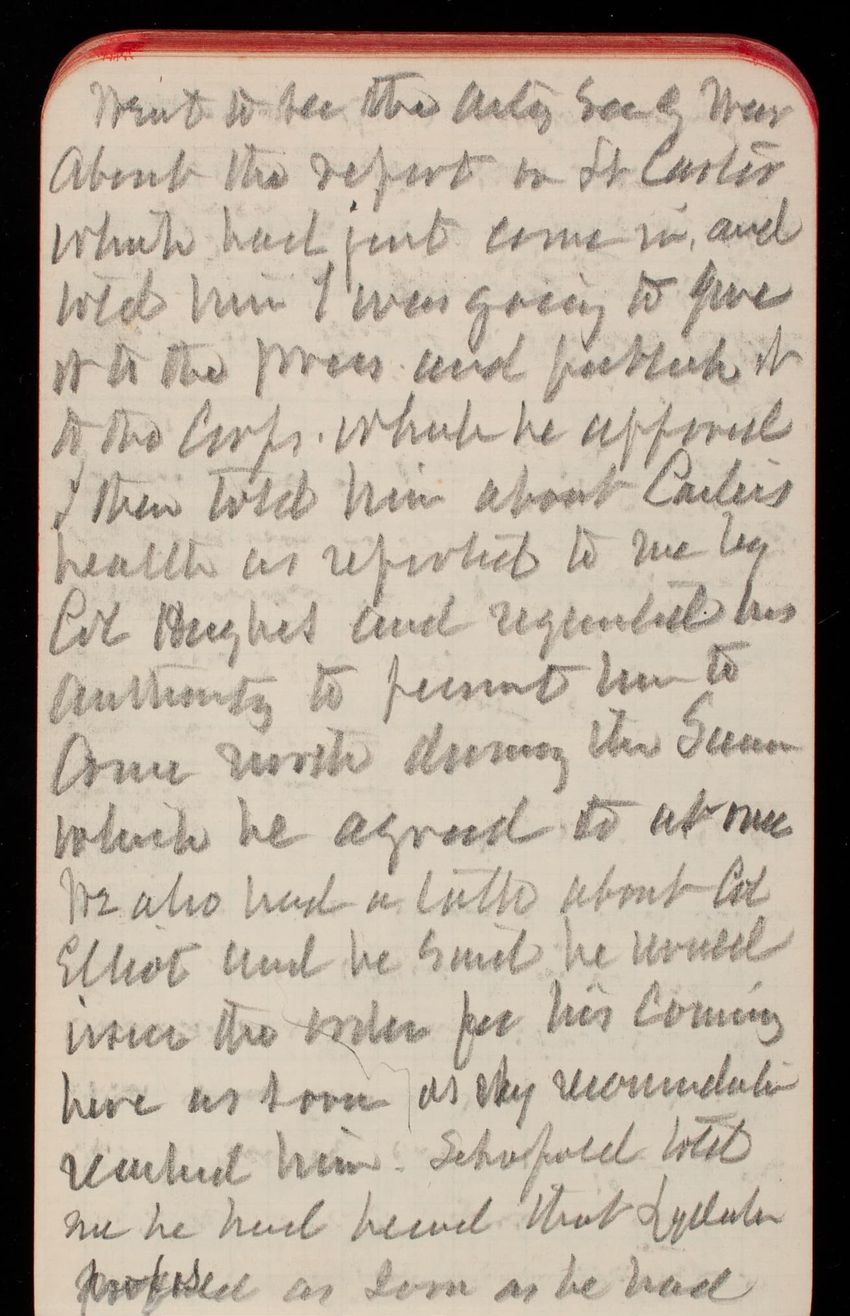 Went to see the Actg Secy War
About the report on Lt Carter
which had just come in, and
told him I was going to give
it to the press and publish it
to the Corps. which he approved
I then told him about
health as reported to me by
Col Hughes and requested his
authority to permit him to
Come north during the Summ
which he agreed to at once
We also had a talk about Col
Elliot and he said he would
issue the order for his coming
here as soon as my recommendation
reached him. Schofield told
me he had heard that Lydecker
proposed as soon as he had